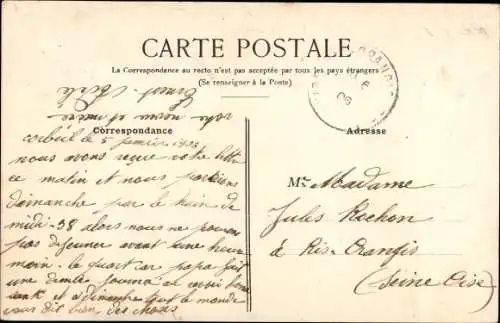 CARTE POSTALE
La Correspondance au recto n'est pas acceptée par tous les pays étrangers
(Se renseigner à la Poste)
Correspondance
Adresse
corbeil le 5 janvier
nous avons reçue votre lettre
ce matin et nous partirons
dimanche par le train de
midi-38 alors nous ne pouvons
pas dejeuner avant une heure
moin le quart car papa fait
une demler
et a dimanche tout le monde
vous dit bien des choses
votre et
Ernest
Mr Madame
Jules Rochon
à Ris-Orangis
(Seine Oise)